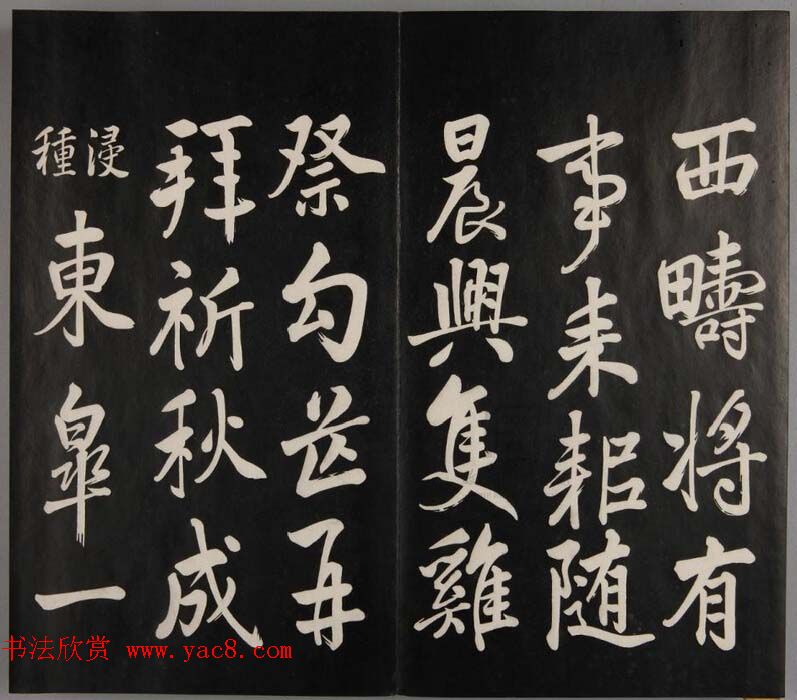 西疇将有
事耒耜随
晨興隻雞
祭勾芒再
拜祈秋成
浸種
東皐一
书法欣赏 www.yac8.com